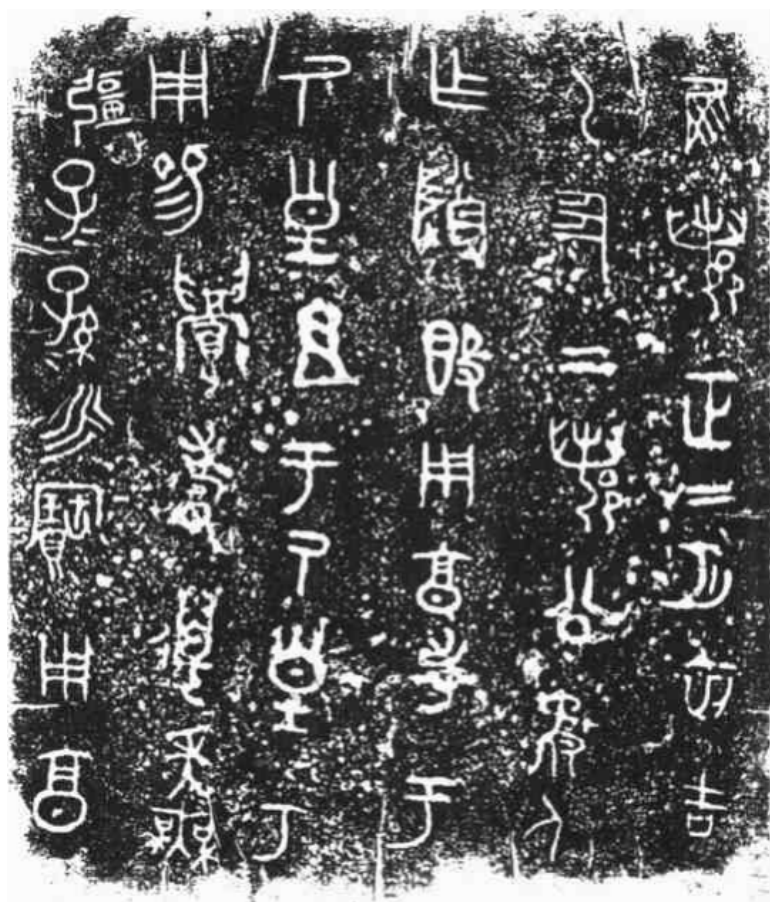 隹鄀正二月初吉
乙丑上鄀公敄人
乍尊簋用享孝于
厥皇且于厥皇丂
用易眉壽邁年無
疆子子孫孫永寶用享